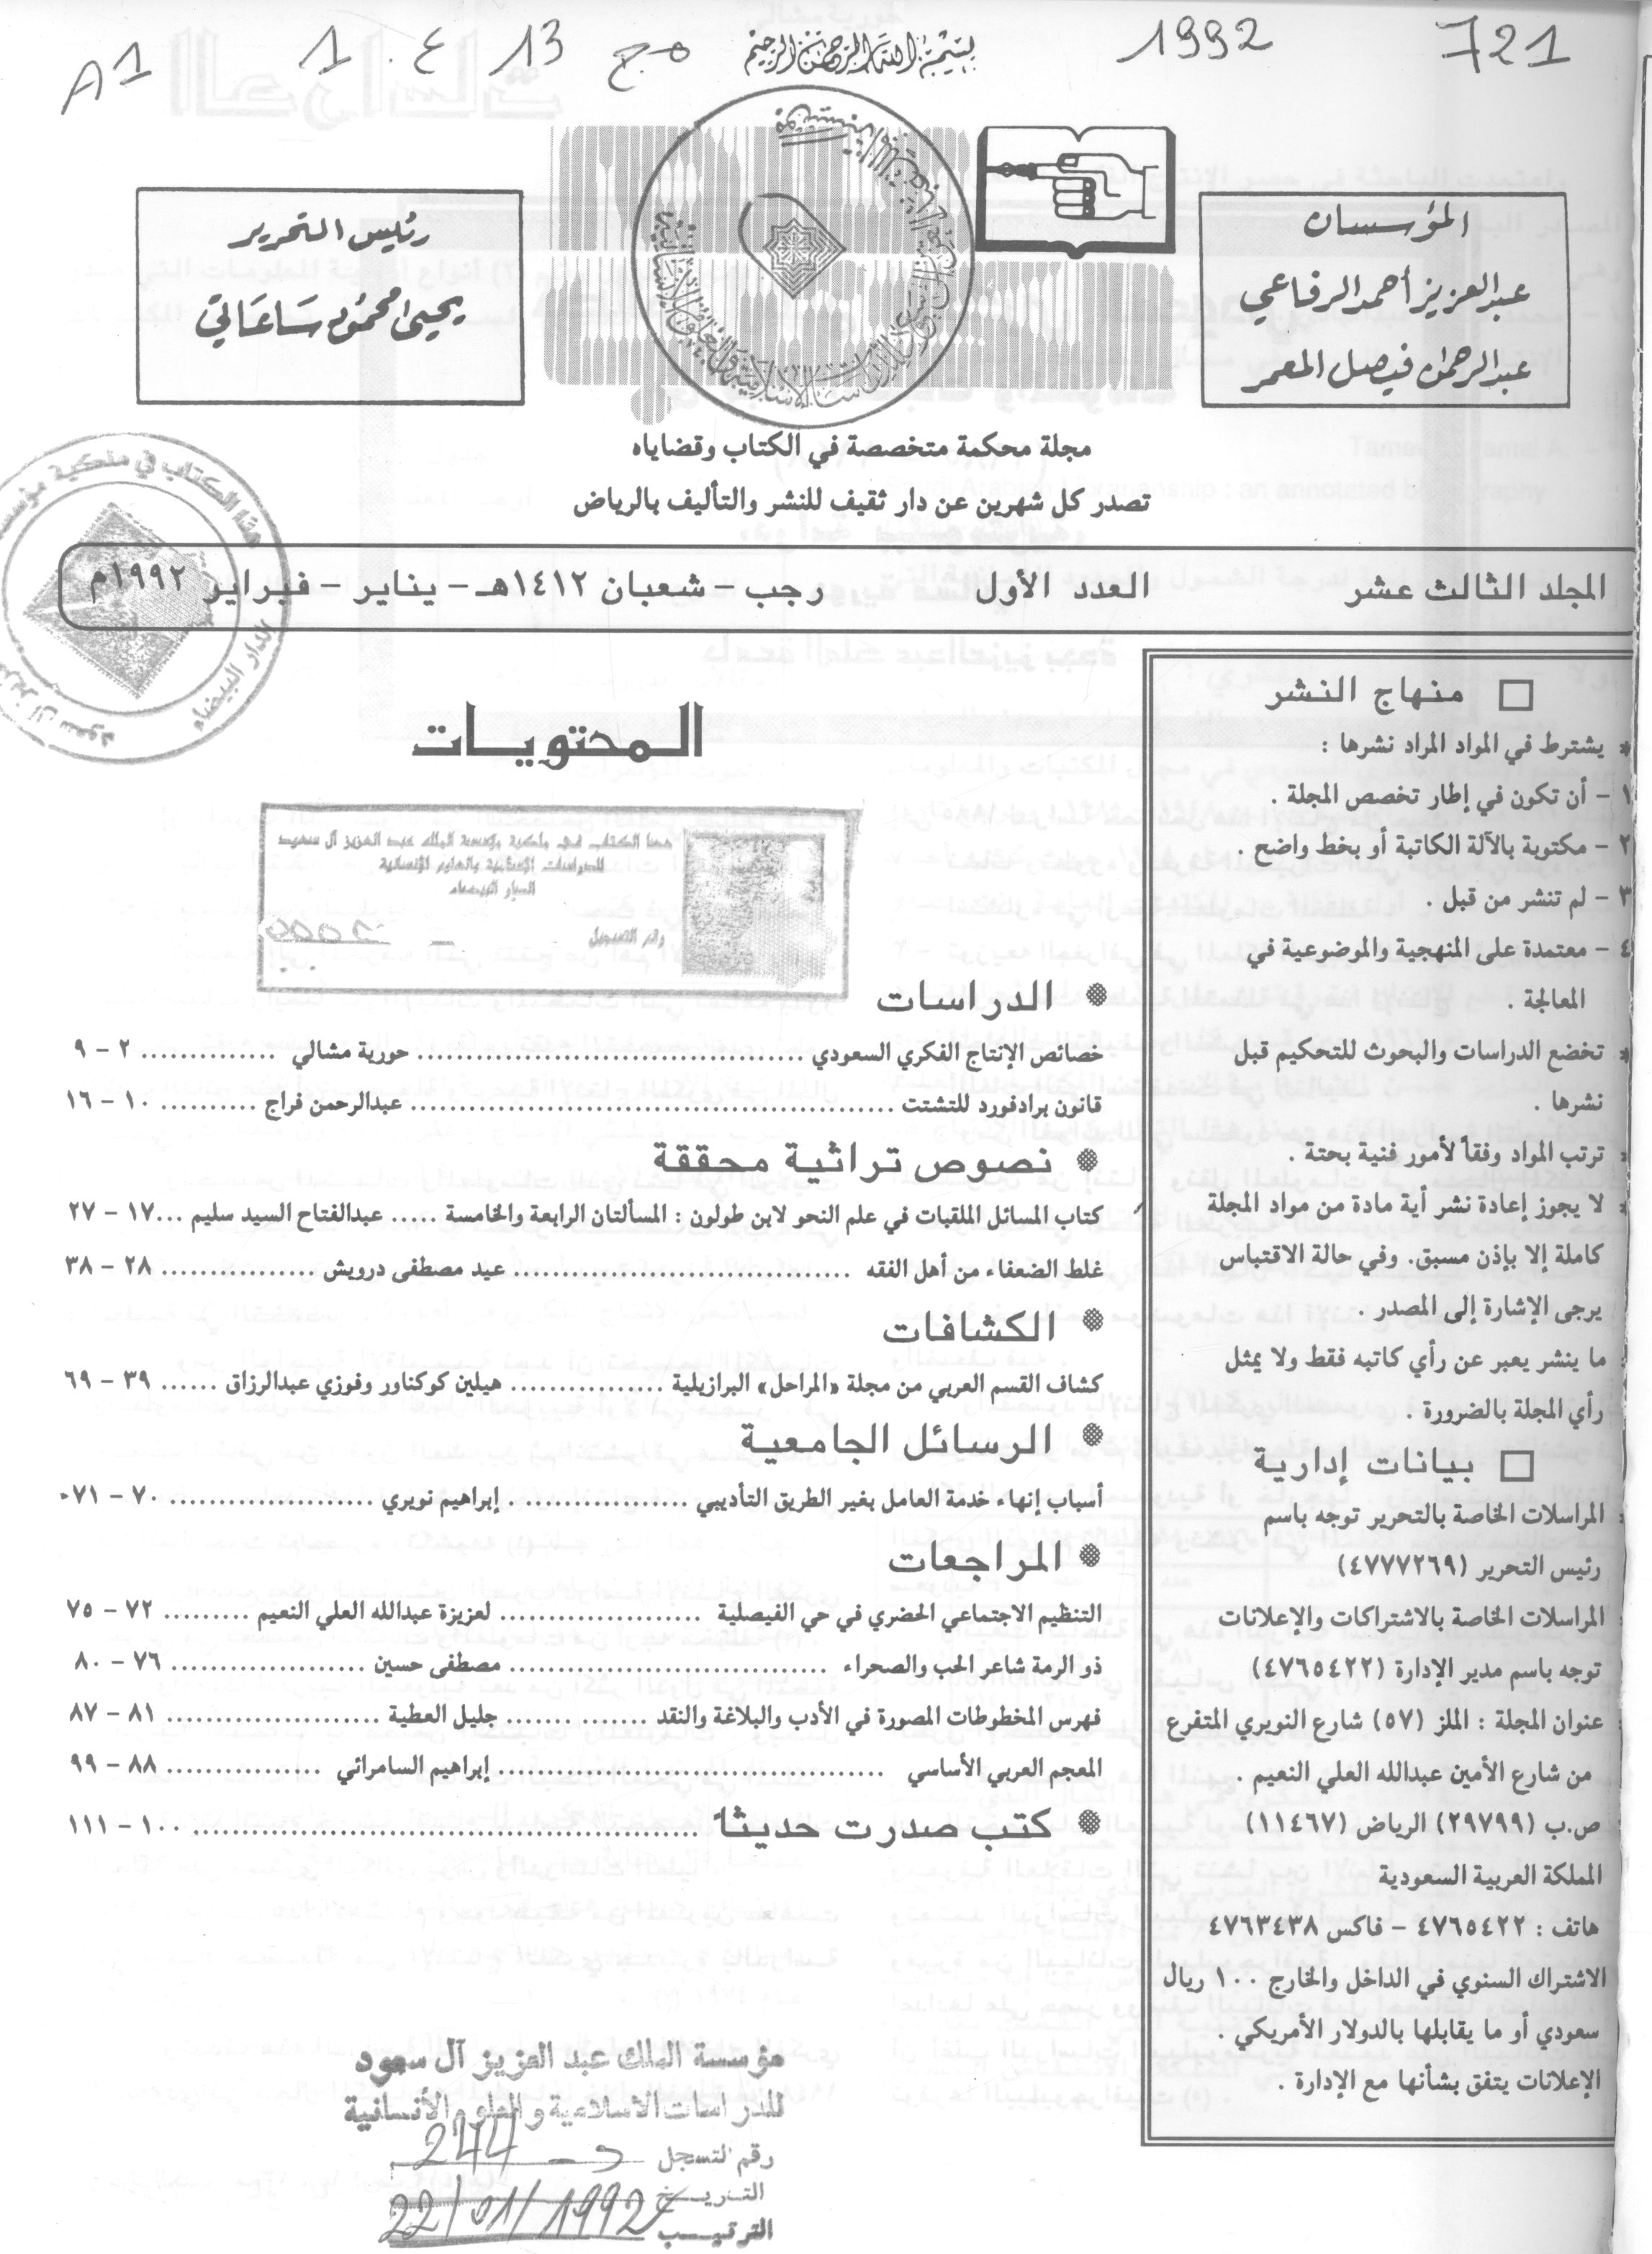 721
1992
بسم الله الرحمن الرحيم
مج 13 ع. 1
A1
المؤسسان
عبدالعزيز أحمد الرفاعي
عبدالرحمن فيصل المعمر
رئيس التحرير
يحيى محمود ساعاتي
مجلة محكمة متخصصة في الكتاب وقضاياه
تصدر كل شهرين عن دار ثقيف للنشر والتأليف بالرياض
المجلد الثالث عشر العدد الأول رجب – شعبان ١٤١٢هـ – يناير – فبراير ١٩٩٢م
□ منهاج النشر
* يشترط في المواد المراد نشرها :
١ – أن تكون في إطار تخصص المجلة .
٢ – مكتوبة بالآلة الكاتبة أو بخط واضح .
٣ – لم تنشر من قبل .
٤ – معتمدة على المنهجية والموضوعية في
المعالجة .
* تخضع الدراسات والبحوث للتحكيم قبل
نشرها .
* ترتب المواد وفقاً لأمور فنية بحتة .
* لا يجوز إعادة نشر أية مادة من مواد المجلة
كاملة إلا بإذن مسبق. وفي حالة الاقتباس
يرجى الإشارة إلى المصدر .
* ما ينشر يعبر عن رأي كاتبه فقط ولا يمثل
رأي المجلة بالضرورة .
□ بيانات إدارية
* المراسلات الخاصة بالتحرير توجه باسم
رئيس التحرير (٤٧٧٧٢٦٩)
* المراسلات الخاصة بالاشتراكات والإعلانات
توجه باسم مدير الإدارة (٤٧٦٥٤٢٢)
* عنوان المجلة : الملز (٥٧) شارع النويري المتفرع
من شارع الأمين عبدالله العلي النعيم .
ص.ب (٢٩٧٩٩) الرياض (١١٤٦٧)
المملكة العربية السعودية
هاتف : ٤٧٦٥٤٢٢ – فاكس ٤٧٦٣٤٣٨
الاشتراك السنوي في الداخل والخارج ١٠٠ ريال
سعودي أو ما يقابلها بالدولار الأمريكي .
الإعلانات يتفق بشأنها مع الإدارة .
المحتويات
هذا الكتاب في ملكية مؤسسة الملك عبد العزيز آل سعود
للدراسات الإسلامية والعلوم الإنسانية
الدار البيضاء
رقم التسجيل
الدراسات
خصائص الإنتاج الفكري السعودي ........ حورية مشالي ........ ٢ – ٩
قانون برادفورد للتشتت ........ عبدالرحمن فراج ........ ١٠ – ١٦
نصوص تراثية محققة
كتاب المسائل الملقبات في علم النحو لابن طولون : المسألتان الرابعة والخامسة ..... عبدالفتاح السيد سليم ... ١٧ – ٢٧
غلط الضعفاء من أهل الفقه ........ عيد مصطفى درويش ........ ٢٨ – ٣٨
الكشافات
كشاف القسم العربي من مجلة «المراحل» البرازيلية ........ هيلين كوكناور وفوزي عبدالرزاق ...... ٣٩ – ٦٩
الرسائل الجامعية
أسباب إنهاء خدمة العامل بغير الطريق التأديبي ........ إبراهيم نويري ........ ٧٠ – ٧١
المراجعات
التنظيم الاجتماعي الحضري في حي الفيصلية ........ لعزيزة عبدالله العلي النعيم ........ ٧٢ – ٧٥
ذو الرمة شاعر الحب والصحراء ........ مصطفى حسين ........ ٧٦ – ٨٠
فهرس المخطوطات المصورة في الأدب والبلاغة والنقد ........ جليل العطية ........ ٨١ – ٨٧
المعجم العربي الأساسي ........ إبراهيم السامرائي ........ ٨٨ – ٩٩
كتب صدرت حديثاً ........ ١٠٠ – ١١١
مؤسسة الملك عبد العزيز آل سعود
للدراسات الاسلامية والعلوم الأنسانية
رقم التسجل د – 244
التاريخ 22/01/1992
الترتيب